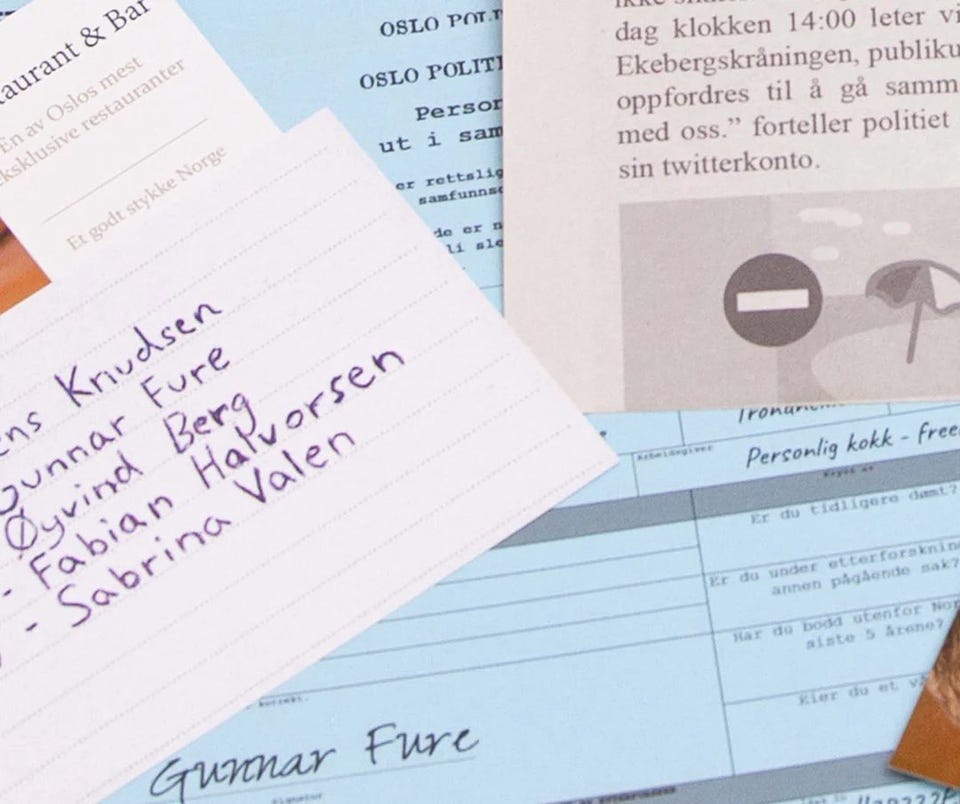 taurant & Bar
En av Oslos mest
eksklusive restauranter
Et godt stykke Norge
OSLO POLIT
OSLO POLITI
Person
ut i sam
er rettslig
samfunns
de er n
li sle
dag klokken 14:00 leter vi
Ekebergskråningen, publiku
oppfordres til å gå samm
med oss.” forteller politiet
sin twitterkonto.
ens Knudsen
Gunnar Fure
Øyvind Berg
- Fabian Halvorsen
- Sabrina Valen
Arbeidsgiver
Personlig kokk - free
Er du tidligere dømt?
Er du under etterforsknin
annen pågående sak?
Har du bodd utenfor Nor
siste 5 årene?
Eier du et vå
korrekt.
Gunnar Fure
Signatur